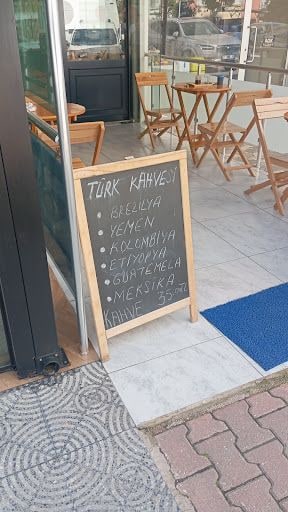 TÜRK KAHVESİ
• BREZİLYA
• YEMEN
• KOLOMBİYA
• ETİYOPYA
• GUATEMELA
• MEKSİKA
KAHVE 35.00 TL